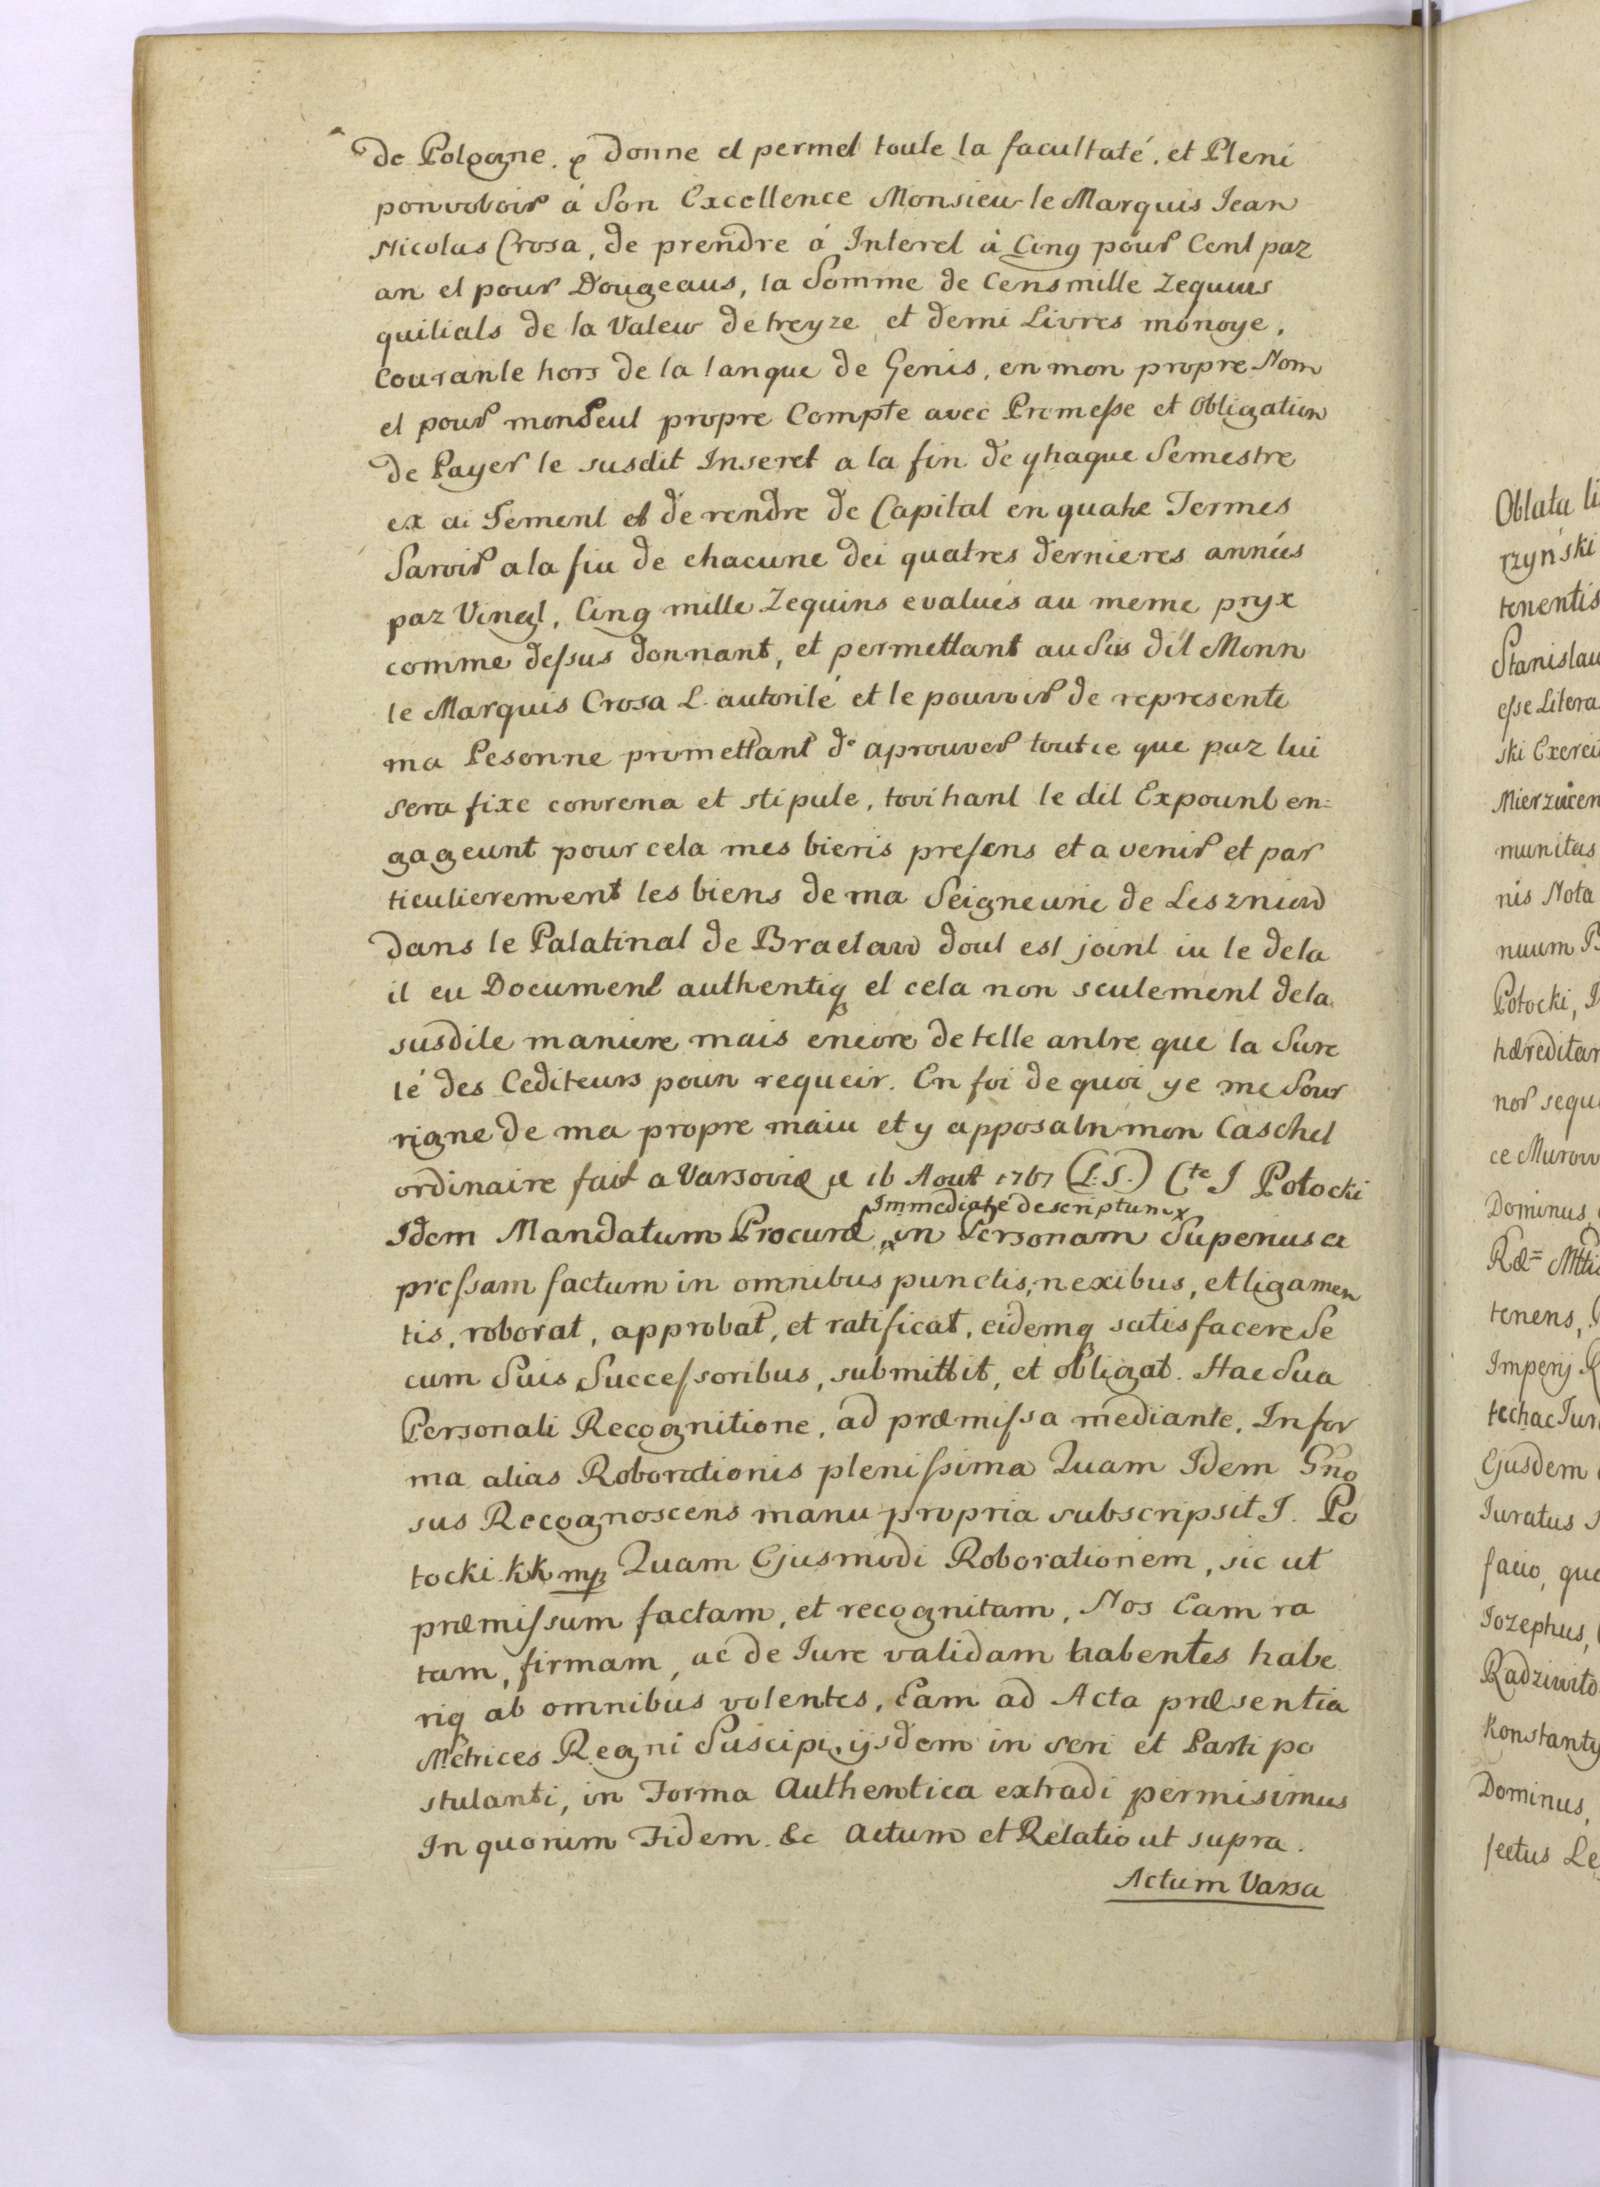 de Polęgne. ę donne el permel toule la facultaté. et Pleni
ponvoboir á Son Excellence Monsieu le Marquis Jean
Nicolas Crosa, de prendre á Interel á Cinq pour Cenl paz
an el pour Dougeaus, la Somme de Censmille Zequues
quilials de la Valeur de treyze et demi Livres monoye,
Couranle hors de la lanque de Genis, en mon propre Nom
el pour monseul propre Compte avec Promesse et Obligation
de Payer le susdit Inseret a la fin de yhaque Semestre
ex ai Semenl et de rendre de Capital en quatre Termes
Saroir a la fiu de chacune dei quatres dernieres annúes
paz Vingl, Cinq mille Zequins evalués au meme pryx
comme dessus donnant, et permettant au Sus dil Monn
le Marquis Crosa L autorilé et le pouvoir de represente
ma Pesonne promettant de aprouver tout ce que paz lui
sera fixe conrena et stipule, tovihanl le dil Expounl en=
gageunt pour cela mes bieris presens et a venir et par
ticulierement les biens de ma Seigneurie de Lesznioω
dans le Palatinal de Braclaw doul est joinl iu le dela
il eu Documenl authentiq el cela non seulemenl dela
susdile maniere mais encore de telle anlre que la Sure
lé des Cediteurs pourr requeir. En foi de quoi ye me Sour
rigne de ma propre maiu et y apposaln mon Caschel
ordinaire fait a Varsovie le 16 Aout 1767 (L.S.) Cte J Potocki
Immediate descriptum
Idem Mandatum Procuræ in Personam Superius ex
pressam factum in omnibus punctis, nexibus, et ligamen
tis, roborat, approbat, et ratificat, eidemq satisfacere Se
cum Suis Successoribus, submittit, et obligat. Hac Sua
Personali Recognitione, ad præmissa mediante. In for
ma alias Roborationis plenissima Quam Idem Gno
sus Recognoscens manu propria subscripsit J. Po
tocki kk mp Quam Ejusmodi Roborationem, sic ut
præmissum factam, et recognitam, Nos Eam ra
tam, firmam, ac de Iure validam habentes habe
riq ab omnibus volentes, Eam ad Acta præsentia
Metrices Regni Suscipi, ijsdem in seri et Parti po
stulanti, in Forma Authentica extradi permisimus
In quorum Fidem &c Actum et Relatio ut supra.
Actum Varsa
Oblata li
rzyński
tenentis
Stanislau
esse Litera
ski Exerci
Mierzwicen
munitas
nis Nota
nuum B
Potocki, I
hæreditar
nor sequ
ce Murow
Dominus,
Ræ= Mtti
tenens,
Imperij R
techac Iur
Ejusdem
Iuratus s
facio, que
Iozephus,
Radziwiło
Konstanty
Dominus,
fectus Le